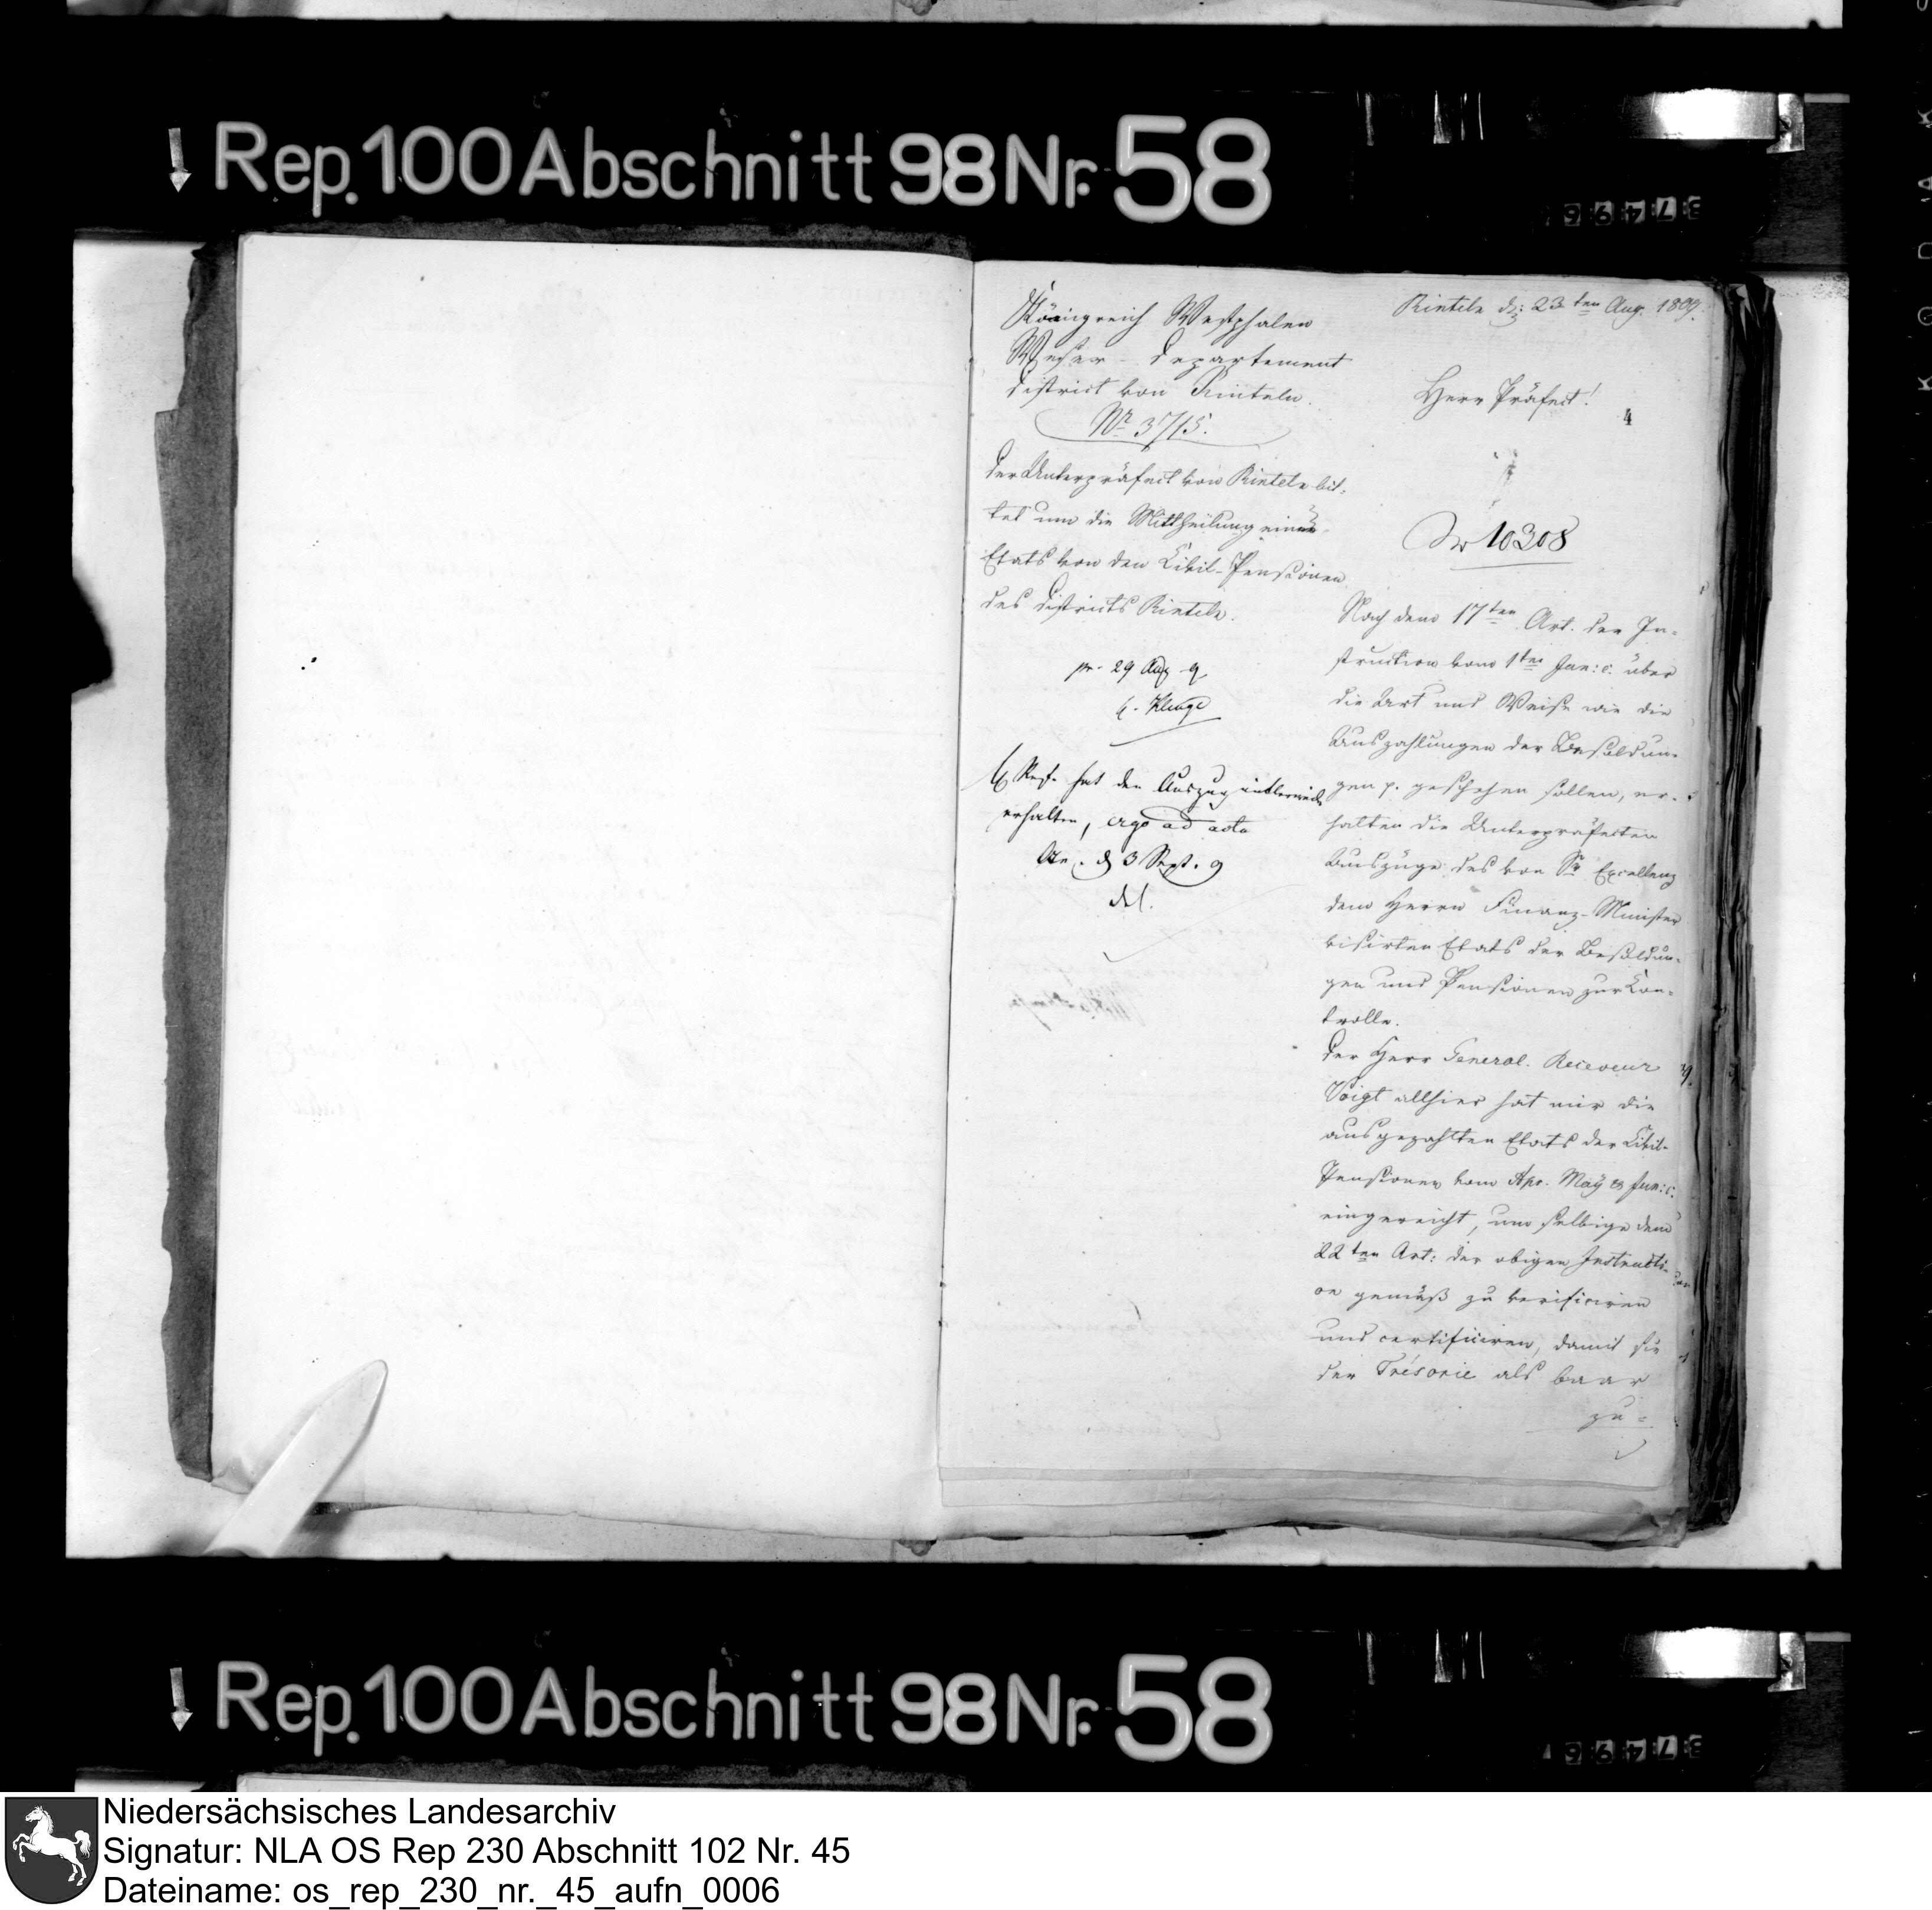 Rep. 100 Abschnitt 98 Nr. 58
Königreich Westphalen
Weser-Departement
District von Rinteln.
Nr. 3715.
Der Unterpräfect von Rinteln bit-
tet um die Mittheilung eines
Etats von den Civil-Pensionen
des Districts Rinteln.
pr. 29 Aug 9
Kluge
hat den Auszug
erhalten, ergo ad acta
d 3 Sept. 9
Rinteln d: 23ten Aug. 1809.
Herr Präfect!
4
Nr 10308
Nach dem 17ten Art. der In-
struction vom 1ten Jan: c. über
die Art und Weise wie die
Auszahlungen der Besoldun-
gen p. geschehen sollen, er-
halten die Unterpräfecten
Auszüge des von Sr Excellenz
dem Herrn Finanz-Minister
visirten Etats der Besoldun-
gen und Pensionen zur Con-
trolle.
Der Herr General-Receveur
Voigt allhier hat mir die
ausgezahlten Etats der Civil-
Pensionen vom Apr. May & Jun: c.
eingereicht, um selbige dem
22ten Art: der obigen Instructi-
on gemäß zu verificiren
und certificiren, damit sie
der Trésorie als baar
zu-
Rep. 100 Abschnitt 98 Nr. 58
Niedersächsisches Landesarchiv
Signatur: NLA OS Rep 230 Abschnitt 102 Nr. 45
Dateiname: os_rep_230_nr._45_aufn_0006